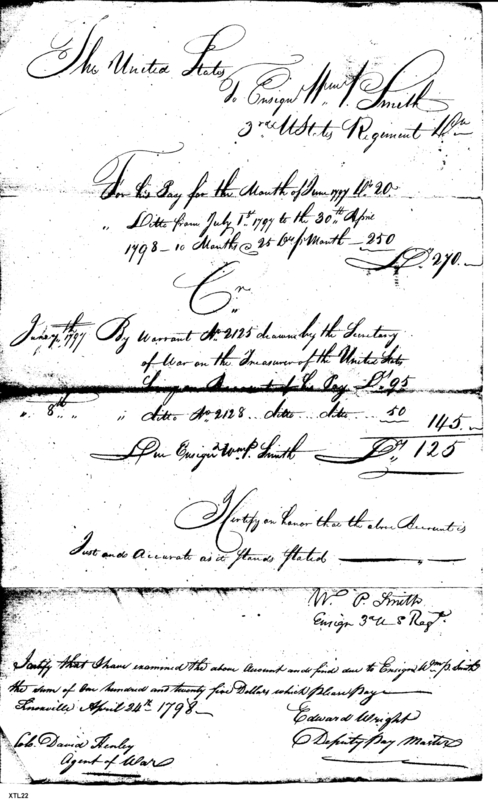 The United States
To Ensign Wm P. Smith
3rd U States Regiment Dr
For his Pay for the Month of June 1797 Drs 20
" Ditto from July 1st 1797 to the 30th April
1798 – 10 Months @ 25 Drs pr Month – 250
Ds 270.
Cr
June 7th 1797 By Warrant No 2125 drawn by the Secretary
of War on the Treasurer of the United States
being on Account of his Pay Ds 95
" 8th " ditto No 2128 ditto ditto 50 145.
Due Ensign Wm P. Smith Ds 125
I Certify on honor that the above Account is
Just and Accurate as it Stands Stated
Wm P. Smith
Ensign 3d U S Regt.
I certify that I have examined the above Account and find due to Ensign Wm P. Smith
the sum of One hundred and twenty five Dollars which Please Pay
Knoxville April 24th 1798
Edward Wright
Deputy Pay Master
Colo. David Henley
Agent of War
XTL22